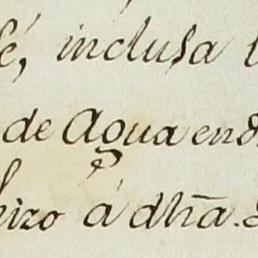 é, inclusa
de Agua en
hizo á dhã.